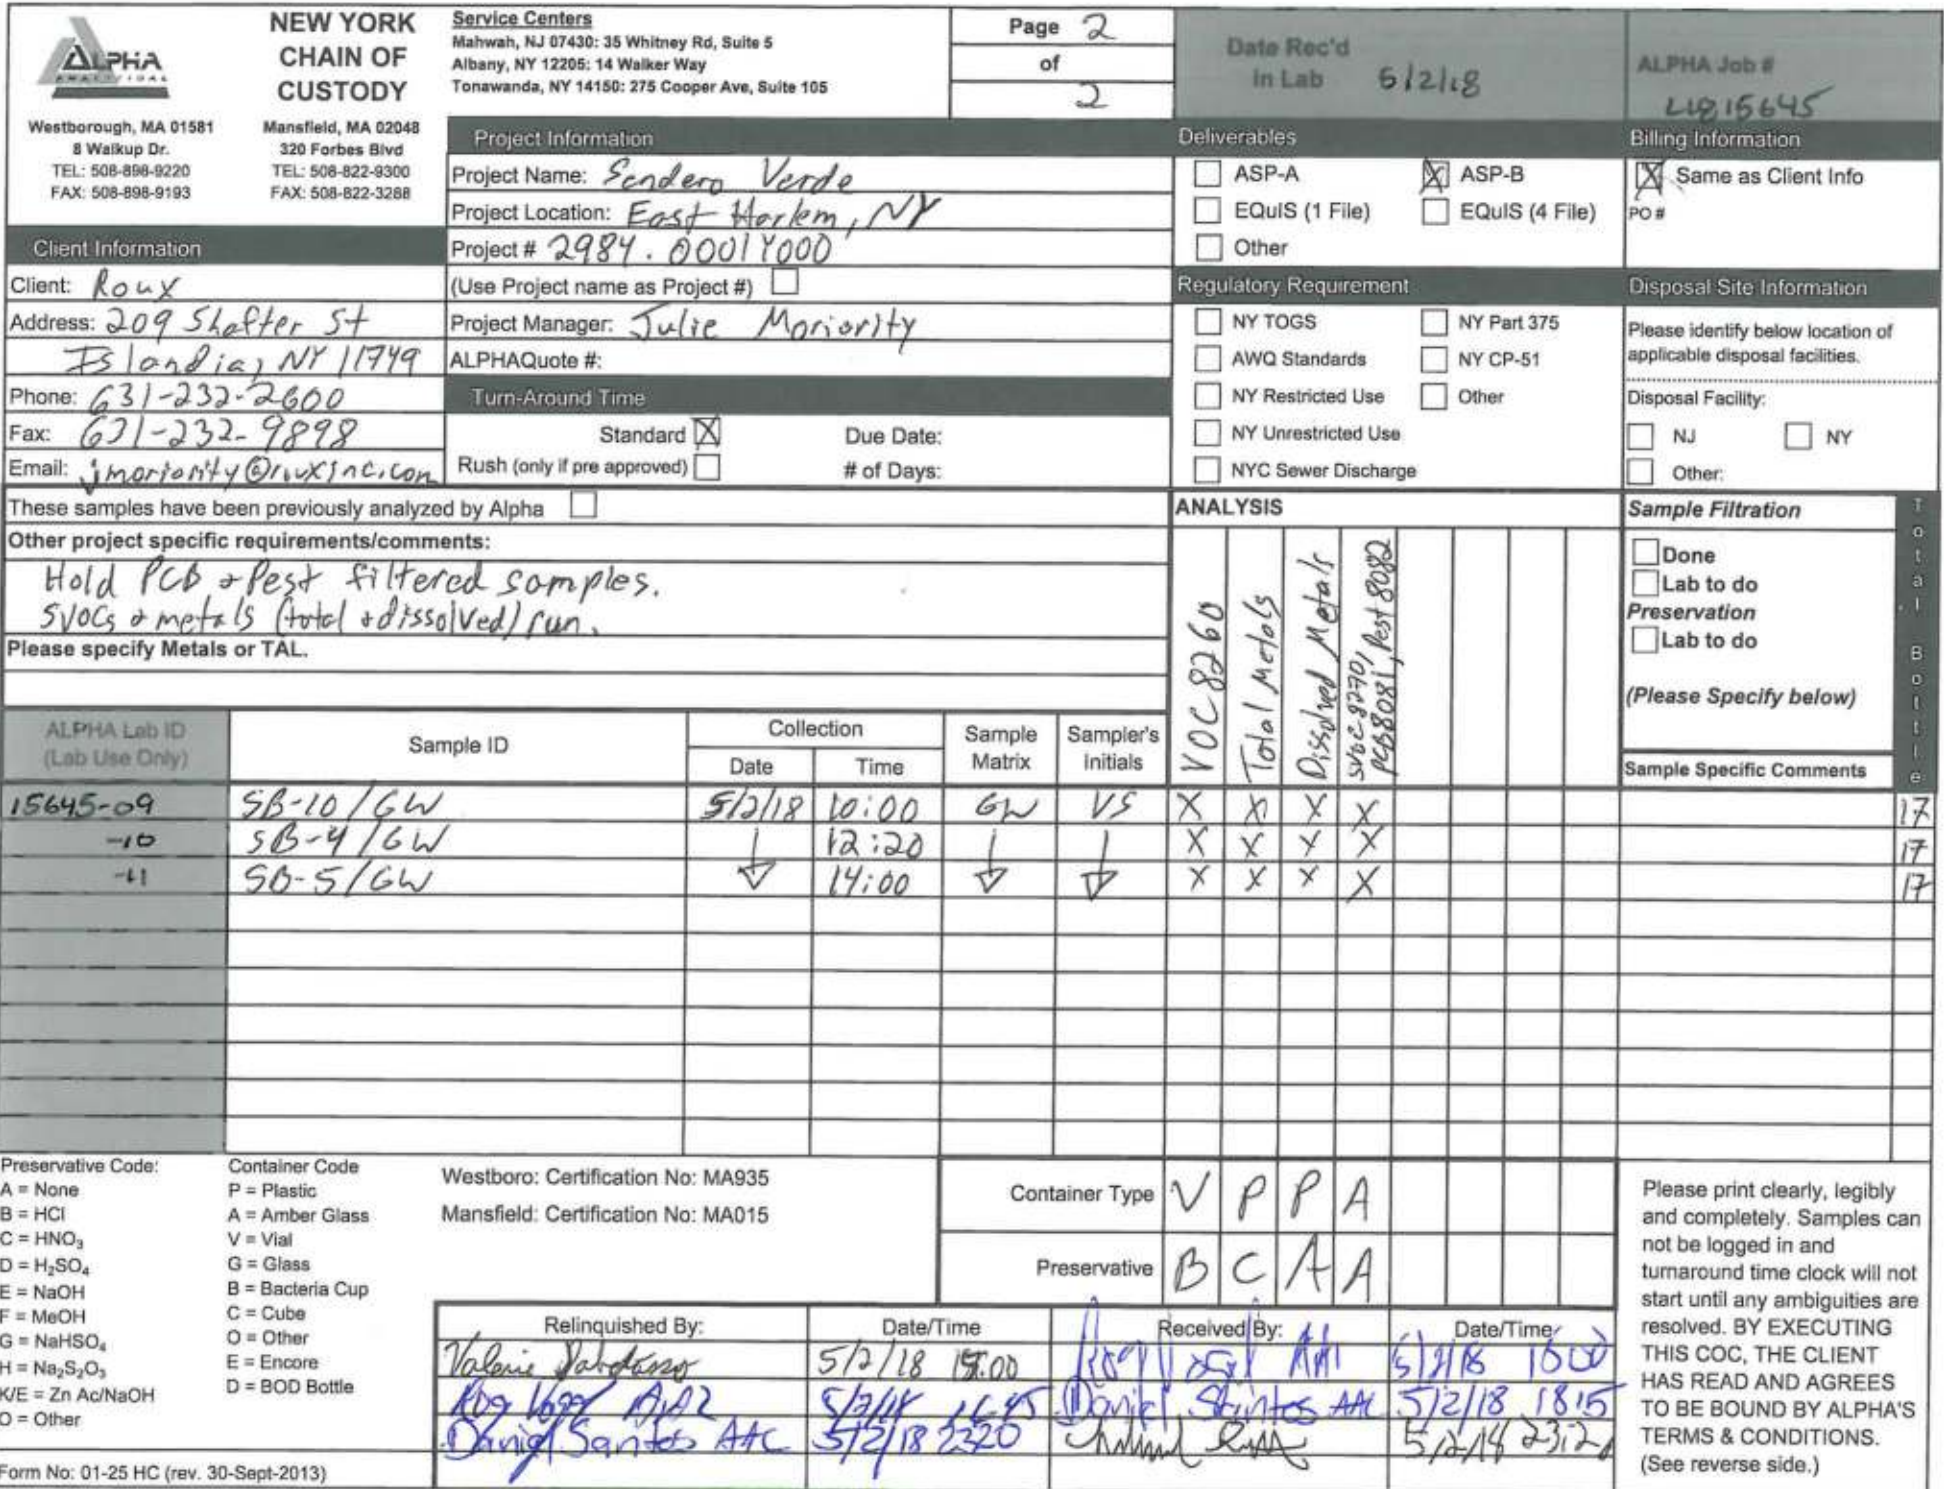 ALPHA
ANALYTICAL
NEW YORK
CHAIN OF
CUSTODY
Westborough, MA 01581
8 Walkup Dr.
TEL: 508-898-9220
FAX: 508-898-9193
Mansfield, MA 02048
320 Forbes Blvd
TEL: 508-822-9300
FAX: 508-822-3288
Service Centers
Mahwah, NJ 07430: 35 Whitney Rd, Suite 5
Albany, NY 12205: 14 Walker Way
Tonawanda, NY 14150: 275 Cooper Ave, Suite 105
Page 2
of
2
Date Rec'd
in Lab 5/2/18
ALPHA Job #
L1815645
Client Information
Client: Roux
Address: 209 Shafter St
Islandia, NY 11749
Phone: 631-232-2600
Fax: 631-232-9898
Email: jmoriarity@rouxinc.com
Project Information
Project Name: Sendero Verde
Project Location: East Harlem, NY
Project # 2984.0001Y000
(Use Project name as Project #)
Project Manager: Julie Moriority
ALPHAQuote #:
Turn-Around Time
Standard X Due Date:
Rush (only if pre approved) # of Days:
Deliverables
ASP-A X ASP-B
EQuIS (1 File) EQuIS (4 File)
Other
Regulatory Requirement
NY TOGS NY Part 375
AWQ Standards NY CP-51
NY Restricted Use Other
NY Unrestricted Use
NYC Sewer Discharge
Billing Information
X Same as Client Info
PO #
Disposal Site Information
Please identify below location of
applicable disposal facilities.
Disposal Facility:
NJ NY
Other:
These samples have been previously analyzed by Alpha
Other project specific requirements/comments:
Hold PCB + Pest filtered samples.
SVOCs + metals (total + dissolved) run.
Please specify Metals or TAL.
ANALYSIS
VOC 8260
Total Metals
Dissolved Metals
SVOC 8270,
PCB 8081, Pest 8082
Sample Filtration
Done
Lab to do
Preservation
Lab to do
(Please Specify below)
Total Bottle
ALPHA Lab ID
(Lab Use Only)
Sample ID
Collection
Date Time
Sample
Matrix
Sampler's
Initials
Sample Specific Comments
15645-09 SB-10/GW 5/2/18 10:00 GW VS X X X X 17
-10 SB-4/GW 12:20 X X X X 17
-11 SB-5/GW 14:00 X X X X 17
Preservative Code:
A = None
B = HCl
C = HNO3
D = H2SO4
E = NaOH
F = MeOH
G = NaHSO4
H = Na2S2O3
K/E = Zn Ac/NaOH
O = Other
Container Code
P = Plastic
A = Amber Glass
V = Vial
G = Glass
B = Bacteria Cup
C = Cube
O = Other
E = Encore
D = BOD Bottle
Westboro: Certification No: MA935
Mansfield: Certification No: MA015
Container Type V P P A
Preservative B C A A
Relinquished By: Date/Time Received By: Date/Time
Valerie 5/2/18 15:00 5/2/18 1500
5/2/18 16:45 Daniel Santos AAL 5/2/18 1815
Daniel Santos AAL 5/2/18 2320 5/2/18 23:20
Please print clearly, legibly
and completely. Samples can
not be logged in and
turnaround time clock will not
start until any ambiguities are
resolved. BY EXECUTING
THIS COC, THE CLIENT
HAS READ AND AGREES
TO BE BOUND BY ALPHA'S
TERMS & CONDITIONS.
(See reverse side.)
Form No: 01-25 HC (rev. 30-Sept-2013)